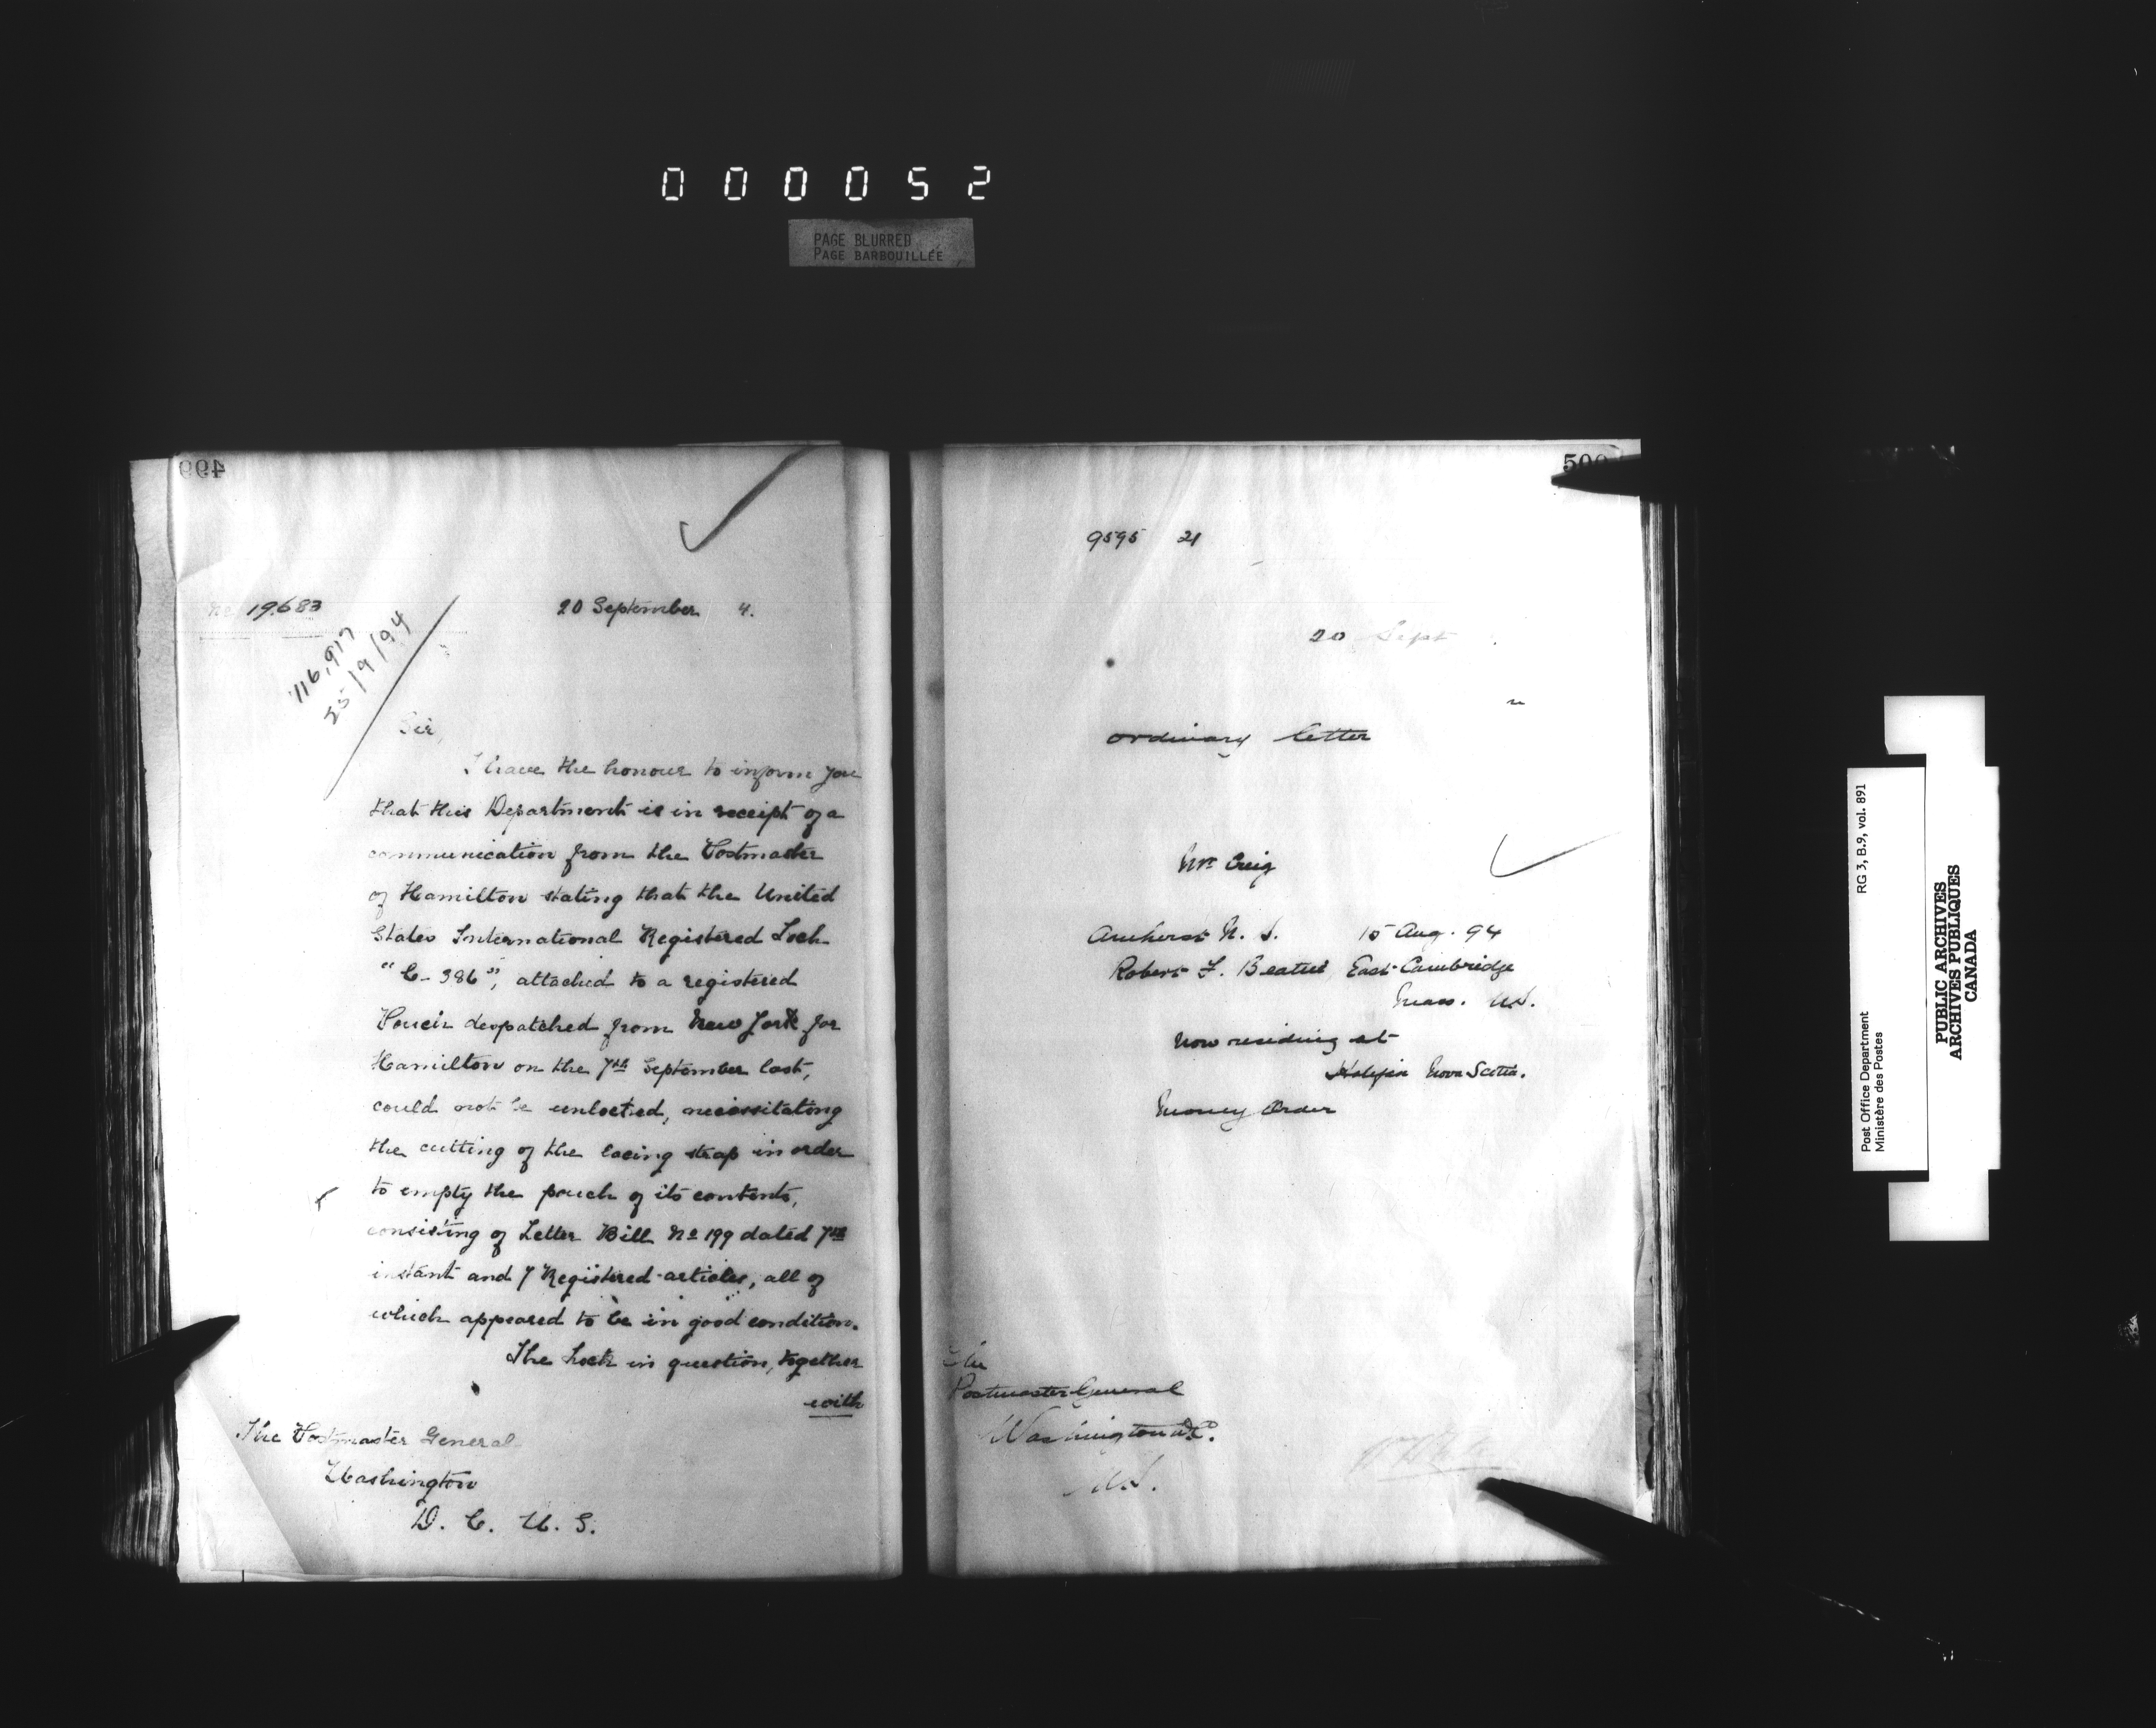 000052
PAGE BLURRED
PAGE BARBOUILLÉE
499
No 19.683
20 September 4.
116,917
25/9/94
Sir,
I have the honour to inform you
that this Department is in receipt of a
communication from the Postmaster
of Hamilton stating that the United
States International Registered Lock
"C-386", attached to a registered
Pouch despatched from New York for
Hamilton on the 7th September last,
could not be unlocked, necessitating
the cutting of the lacing strap in order
to empty the pouch of its contents,
consisting of Letter Bill No 199 dated 7th
instant and 7 Registered articles, all of
which appeared to be in good condition.
The Lock in question, together
with
The Postmaster General
Washington
D. C. U. S.
500
9595 21
20 Sept
ordinary letter
Mrs Creig
Amherst N. S. 15 Aug. 94
Robert F. Beattie East Cambridge
Mass. U.S.
now residing at
Halifax Nova Scotia.
Money Order
The
Postmaster General
Washington D.C.
U.S.
Post Office Department
Ministère des Postes
RG 3, B.9, vol. 891
PUBLIC ARCHIVES
ARCHIVES PUBLIQUES
CANADA